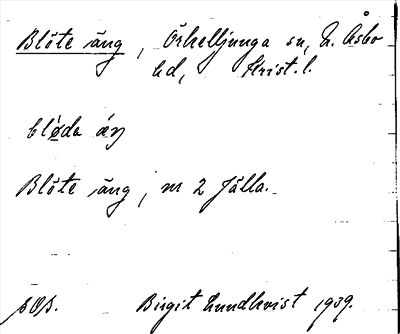 Blöte äng, Örkelljunga sn, N. Åsbo
hd, Krist. l.
Blöte äng, m 2 Jälla.
Birgit Lundkvist 1939.